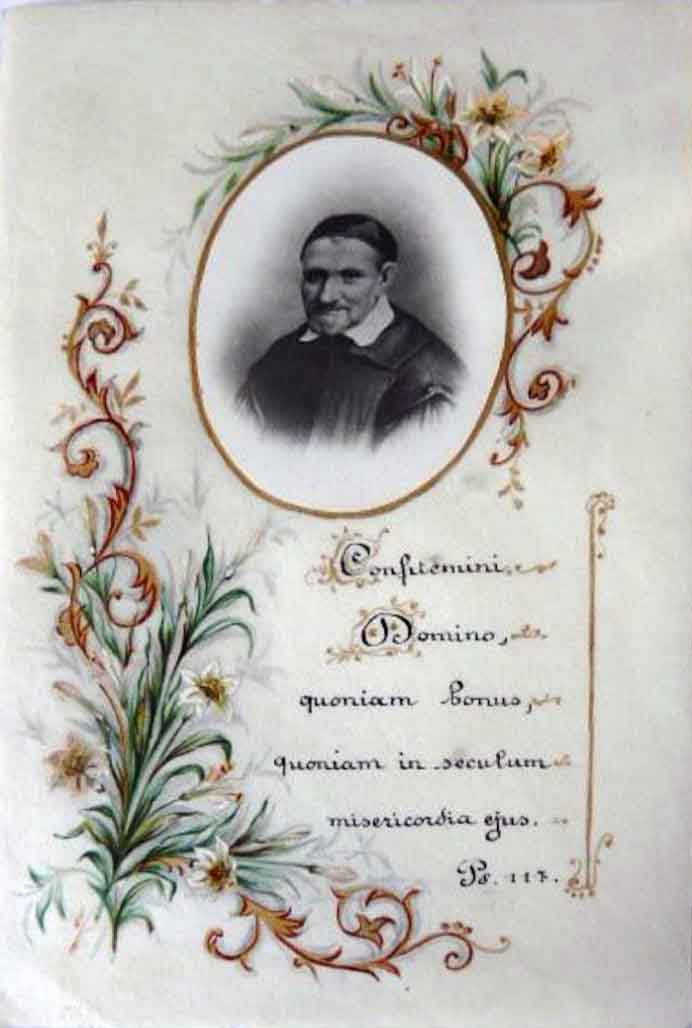 Confitemini
Domino,
quoniam bonus,
quoniam in seculum
misericordia ejus.
Ps. 117.